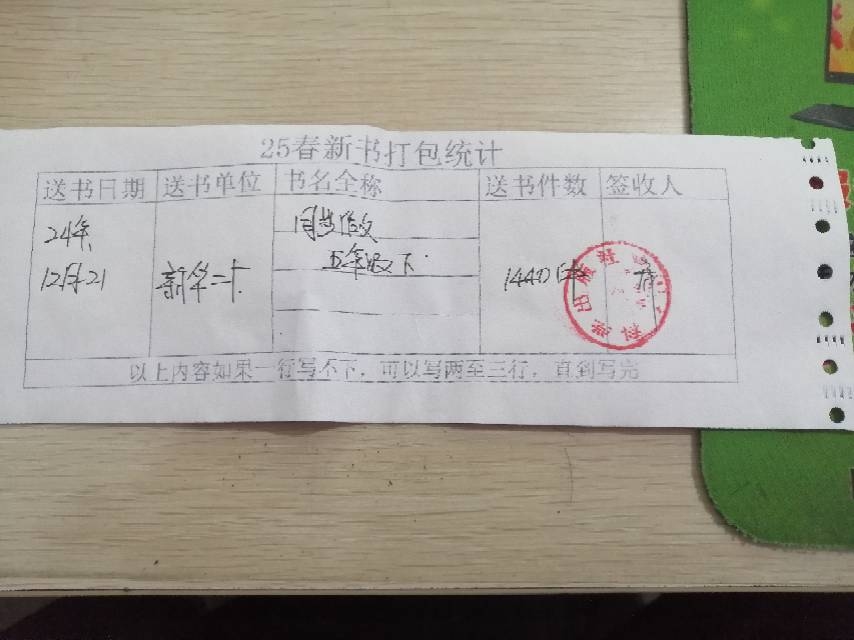 25春新书打包统计
送书日期 送书单位 书名全称 送书件数 签收人
24年
12月21 新华二卡 同步作文 1440本
五年级下
以上内容如果一行写不下，可以写两至三行，直到写完